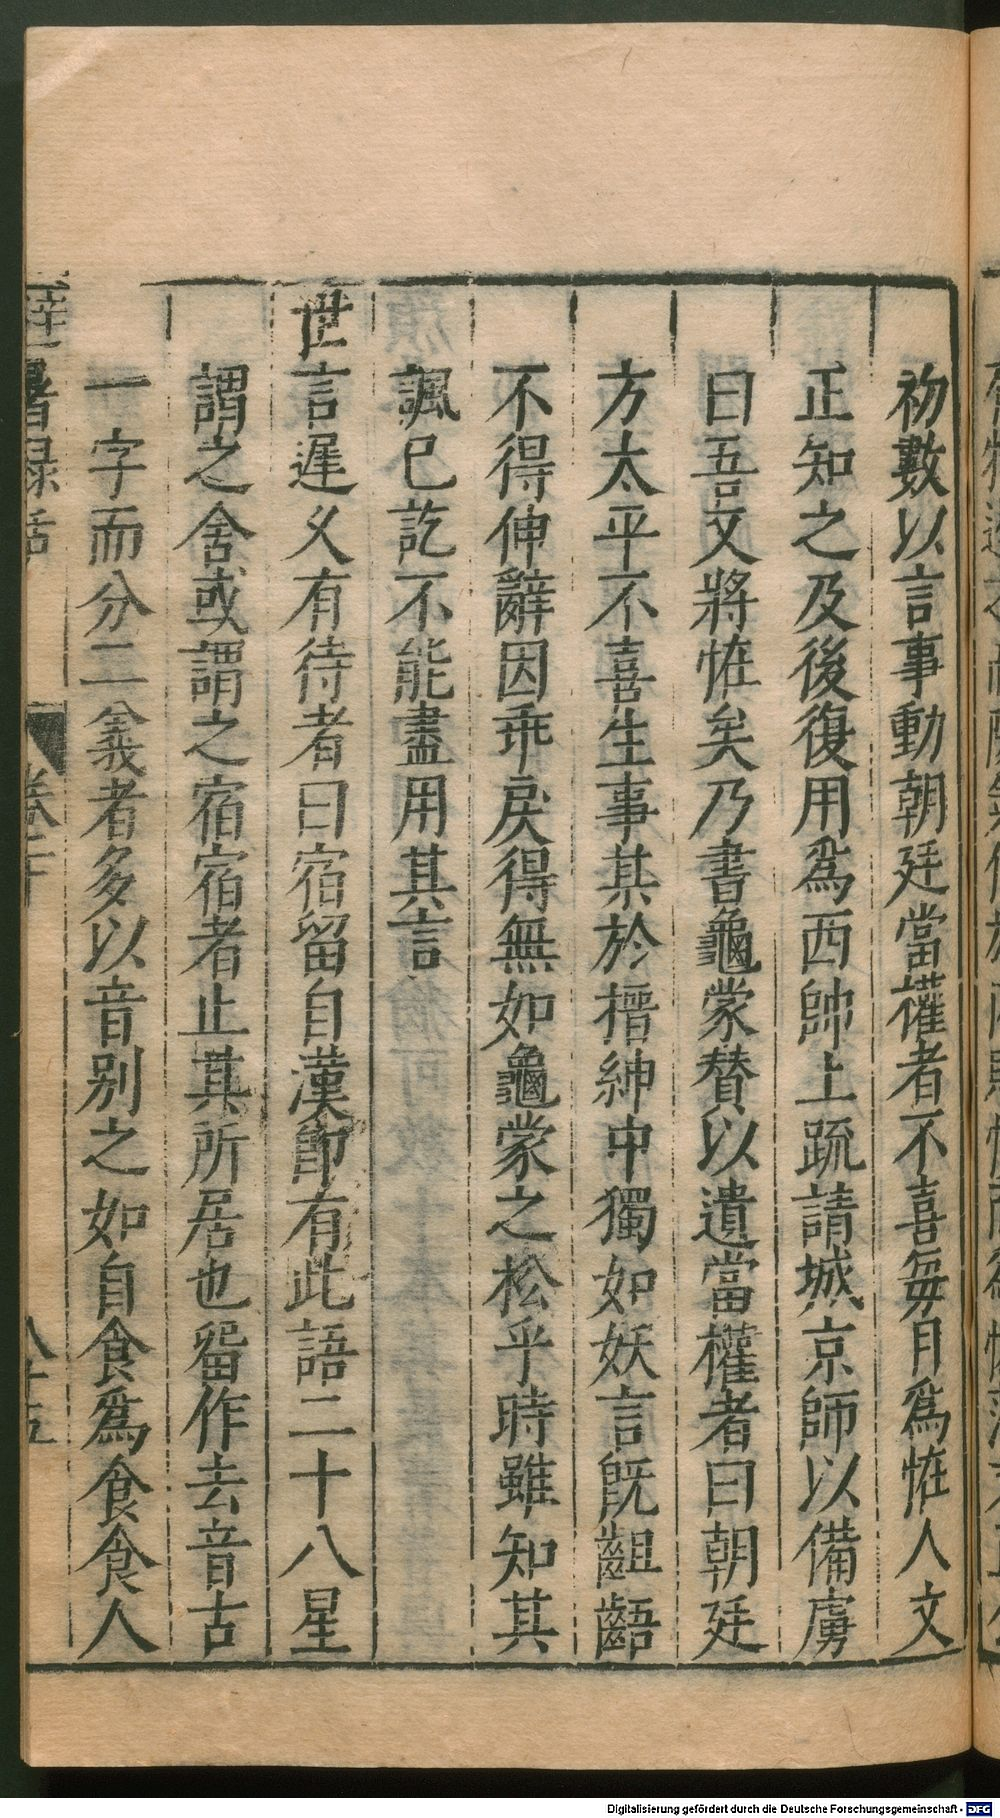 初數以言事動朝廷當權者不喜每月爲恠人文
正知之及後復用爲西帥上疏請城京師以備虜
曰吾文將恠矣乃書龜蒙賛以遺當權者曰朝廷
方太平不喜生事其於搢紳中獨如妖言旣齟齬
不得伸辭因乖戾得無如龜蒙之松乎時雖知其
諷巳訖不能盡用其言
世言遲乂有待者曰宿留自漢卽有此語二十八星
謂之舍或謂之宿宿者止其所居也畱作去音古
一字而分二義者多以音别之如自食爲食食人
避暑録話 卷下 八十五
Digitalisierung gefördert durch die Deutsche Forschungsgemeinschaft - DFG